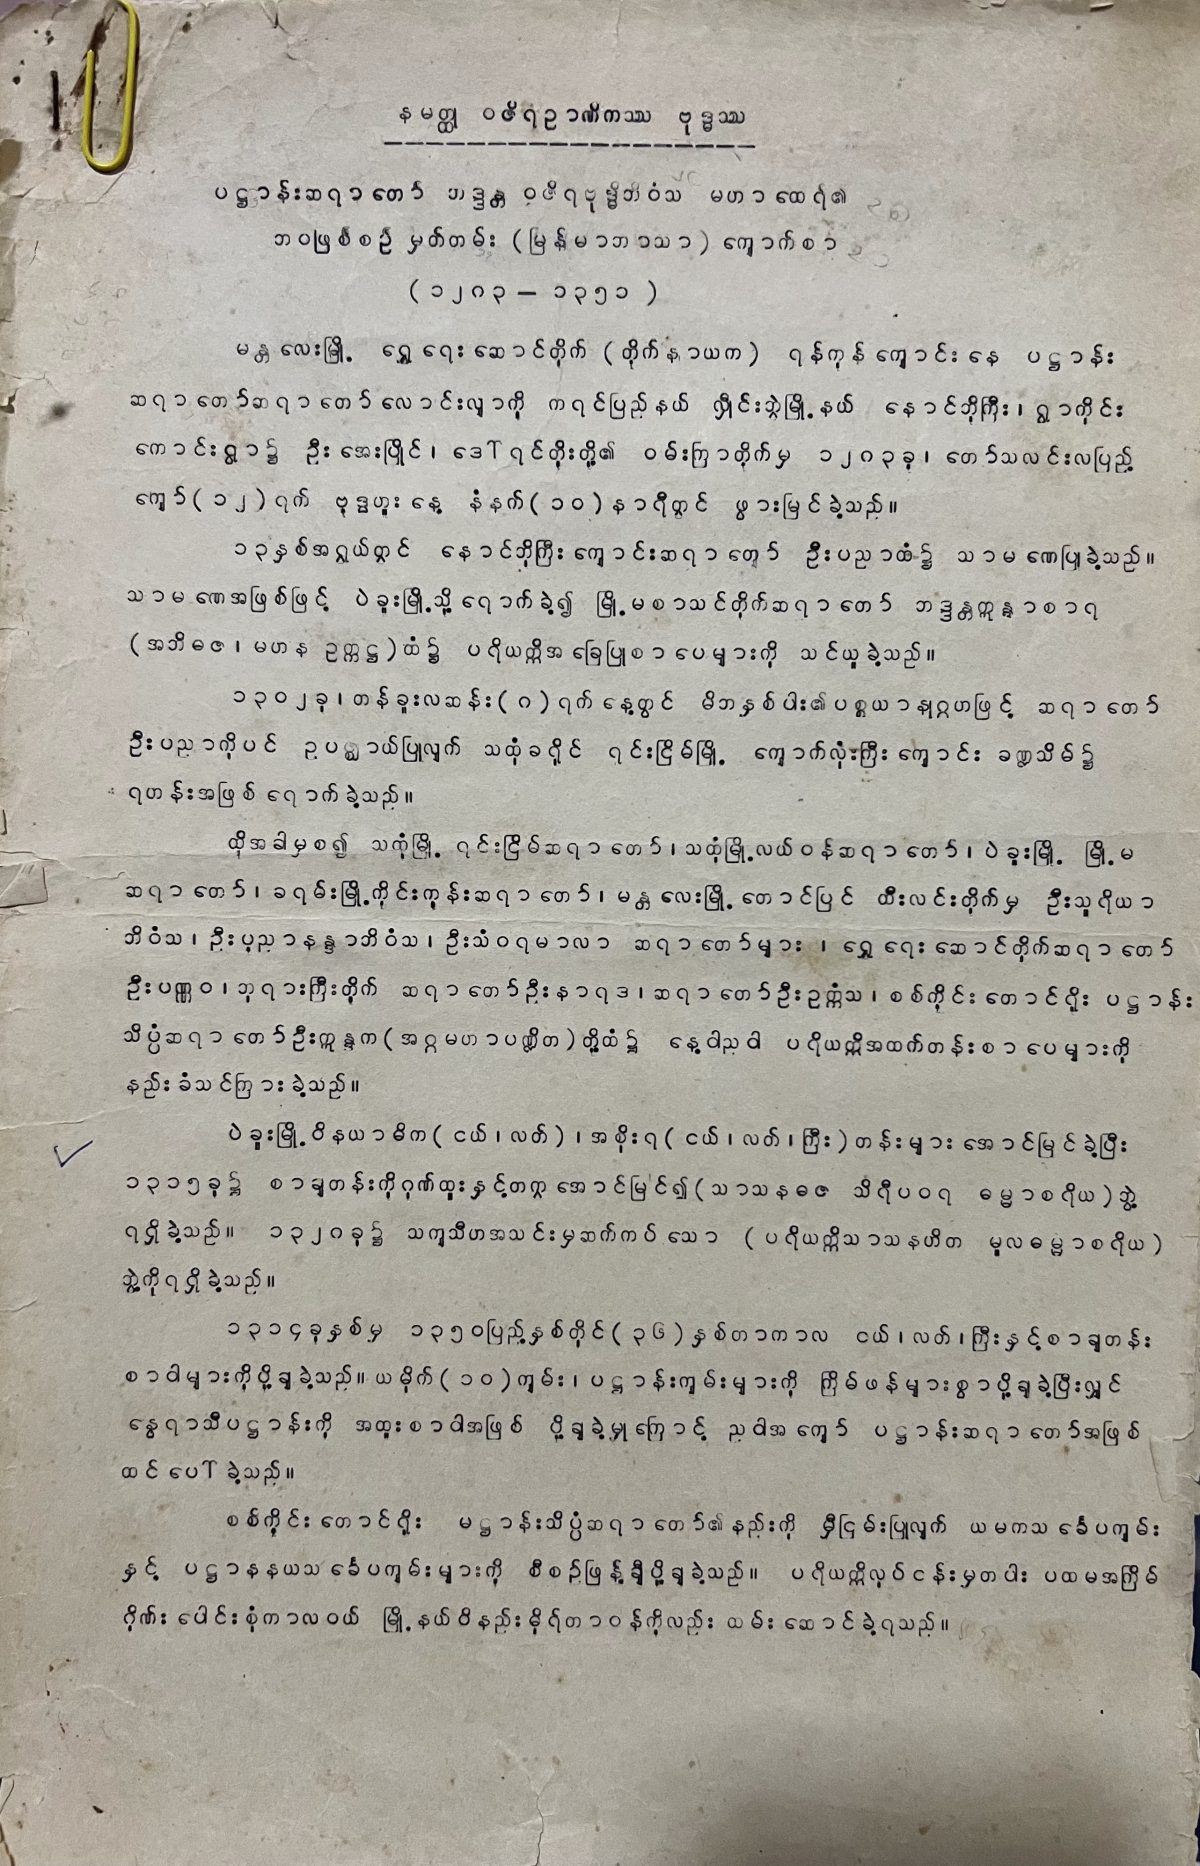 နမတ္ထု ဝဇိရဉာဏိကဿ ဗုဒ္ဓဿ
ပဋ္ဌာန်းဆရာတော် ဘဒ္ဒန္တ ဝဇိရဗုဒ္ဓိဘိဝံသ မဟာထေရ်၏
ဘဝဖြစ်စဉ် မှတ်တမ်း (မြန်မာဘာသာ) ကျောက်စာ
(၁၂၈၃ — ၁၃၅၁)
မန္တလေးမြို့ ရွှေရေးဆောင်တိုက် (တိုက်နာယက) ရန်ကုန်ကျောင်းနေ ပဋ္ဌာန်း
ဆရာတော်ဆရာတော်လောင်းလျာကို ကရင်ပြည်နယ် လှိုင်းဘွဲမြို့နယ် နောင်ဘိုကြီး၊ ရွာကိုင်း
ကောင်းရွာ၌ ဦးအေးပြိုင်၊ ဒေါ်ရင်တိုးတို့၏ ဝမ်းကြာတိုက်မှ ၁၂၈၃ခု၊ တော်သလင်းလပြည့်
ကျော်(၁၂)ရက် ဗုဒ္ဓဟူးနေ့ နံနက်(၁၀)နာရီတွင် ဖွားမြင်ခဲ့သည်။
၁၃နှစ်အရွယ်တွင် နောင်ဘိုကြီးကျောင်းဆရာတော် ဦးပညာထံ၌ သာမဏေပြုခဲ့သည်။
သာမဏေအဖြစ်ဖြင့် ပဲခူးမြို့သို့ရောက်ခဲ့၍ မြို့မစာသင်တိုက်ဆရာတော် ဘဒ္ဒန္တဣန္ဒာစာရ
(အဘိဓဇ၊မဟနဥက္ကဋ္ဌ)ထံ၌ ပရိယတ္တိအခြေပြုစာပေများကို သင်ယူခဲ့သည်။
၁၃၀၂ခု၊တန်ခူးလဆန်း(၈)ရက်နေ့တွင် မိဘနှစ်ပါး၏ပစ္စယာနုဂ္ဂဟဖြင့် ဆရာတော်
ဦးပညာကိုပင် ဥပဇ္ဈာယ်ပြုလျက် သထုံခရိုင် ရင်းငြိမ်မြို့ ကျောက်လုံးကြီးကျောင်း ခဏ္ဍသိမ်၌
ရဟန်းအဖြစ် ရောက်ခဲ့သည်။
ထိုအခါမှစ၍ သထုံမြို့ ရင်းငြိမ်ဆရာတော်၊သထုံမြို့လယ်ဝန်ဆရာတော်၊ပဲခူးမြို့ မြို့မ
ဆရာတော်၊ခရမ်းမြို့ကိုင်းကုန်းဆရာတော်၊မန္တလေးမြို့တောင်ပြင် ထီးလင်းတိုက်မှ ဦးသူရိယာ
ဘိဝံသ၊ဦးပညာနန္ဒာဘိဝံသ၊ဦးသံဝရမာလာ ဆရာတော်များ၊ ရွှေရေးဆောင်တိုက်ဆရာတော်
ဦးပဏ္ဍဝ၊ဘုရားကြီးတိုက် ဆရာတော်ဦးနာရဒ၊ဆရာတော်ဦးဥက္ကံသ၊စစ်ကိုင်းတောင်ရိုး ပဋ္ဌာန်း
သိပ္ပံဆရာတော်ဦးဣန္ဒက(အဂ္ဂမဟာပဏ္ဍိတ)တို့ထံ၌ နေ့ဝါညဝါ ပရိယတ္တိအထက်တန်းစာပေများကို
နည်းခံသင်ကြားခဲ့သည်။
ပဲခူးမြို့ဝိနယာဓိက(ငယ်၊လတ်)၊အစိုးရ(ငယ်၊လတ်၊ကြီး)တန်းများအောင်မြင်ခဲ့ပြီး
၁၃၁၅ခု၌ စာချတန်းကိုဂုဏ်ထူးနှင့်တကွအောင်မြင်၍(သာသနဓဇ သီရိပဝရ ဓမ္မာစရိယ)ဘွဲ့
ရရှိခဲ့သည်။ ၁၃၂၈ခု၌ သကျသီဟအသင်းမှဆက်ကပ်သော (ပရိယတ္တိသာသနဟိတ မူလဓမ္မာစရိယ)
ဘွဲ့ကိုရရှိခဲ့သည်။
၁၃၁၄ခုနှစ်မှ ၁၃၅၀ပြည့်နှစ်တိုင်(၃၆)နှစ်တာကာလ ငယ်၊လတ်၊ကြီးနှင့်စာချတန်း
စာဝါများကိုပို့ချခဲ့သည်။ယမိုက်(၁၀)ကျမ်း၊ပဋ္ဌာန်းကျမ်းများကို ကြိမ်ဖန်များစွာပို့ချခဲ့ပြီးလျှင်
နွေရာသီပဋ္ဌာန်းကို အထူးစာဝါအဖြစ် ပို့ချခဲ့မှုကြောင့် ညဝါအကျော် ပဋ္ဌာန်းဆရာတော်အဖြစ်
ထင်ပေါ်ခဲ့သည်။
စစ်ကိုင်းတောင်ရိုး မဋ္ဌာန်းသိပ္ပံဆရာတော်၏နည်းကို မှီငြမ်းပြုလျက် ယမကသင်္ခေပကျမ်း
နှင့် ပဋ္ဌာနနယသင်္ခေပကျမ်းများကို စီစဉ်ဖြန့်ချိပို့ချခဲ့သည်။ ပရိယတ္တိလုပ်ငန်းမှတပါး ပထမအကြိမ်
ဂိုဏ်းပေါင်းစုံကာလဝယ် မြို့နယ်ဝိနည်းဓိုရ်တာဝန်ကိုလည်း ထမ်းဆောင်ခဲ့ရသည်။